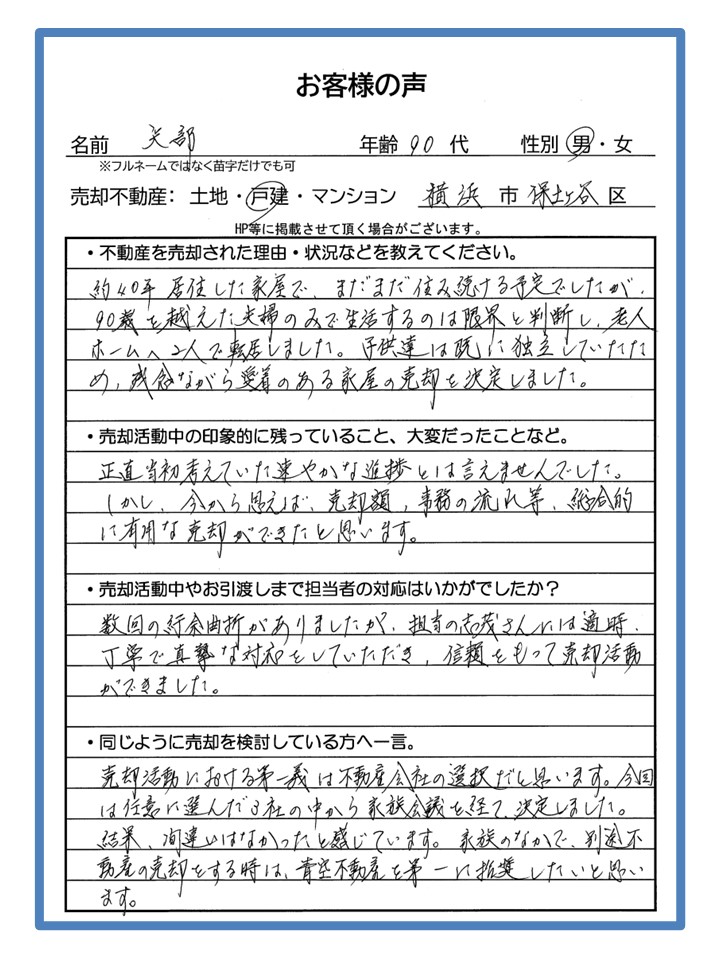 お客様の声
名前 矢部 年齢 90 代 性別 男・女
※フルネームではなく苗字だけでも可
売却不動産： 土地・戸建・マンション 横浜 市 保土ヶ谷 区
HP等に掲載させて頂く場合がございます。
・不動産を売却された理由・状況などを教えてください。
約40年居住した家屋で、まだまだ住み続ける予定でしたが、
90歳を越えた夫婦のみで生活するのは限界と判断し、老人
ホームへ2人で転居しました。子供達は既に独立していたた
め、残念ながら愛着のある家屋の売却を決定しました。
・売却活動中の印象的に残っていること、大変だったことなど。
正直当初考えていた速やかな進捗とは言えませんでした。
しかし、今から思えば、売却額、事務の流れ等、総合的
に有用な売却ができたと思います。
・売却活動中やお引渡しまで担当者の対応はいかがでしたか？
数回の紆余曲折がありましたが、担当の志茂さんには適時、
丁寧で真摯な対応をしていただき、信頼をもって売却活動
ができました。
・同じように売却を検討している方へ一言。
売却活動における第一義は不動産会社の選択だと思います。今回
は任意に選んだ3社の中から家族会議を経て、決定しました。
結果、間違いはなかったと感じています。家族のなかで、別途不
動産の売却をする時は、青空不動産を第一に推奨したいと思い
ます。